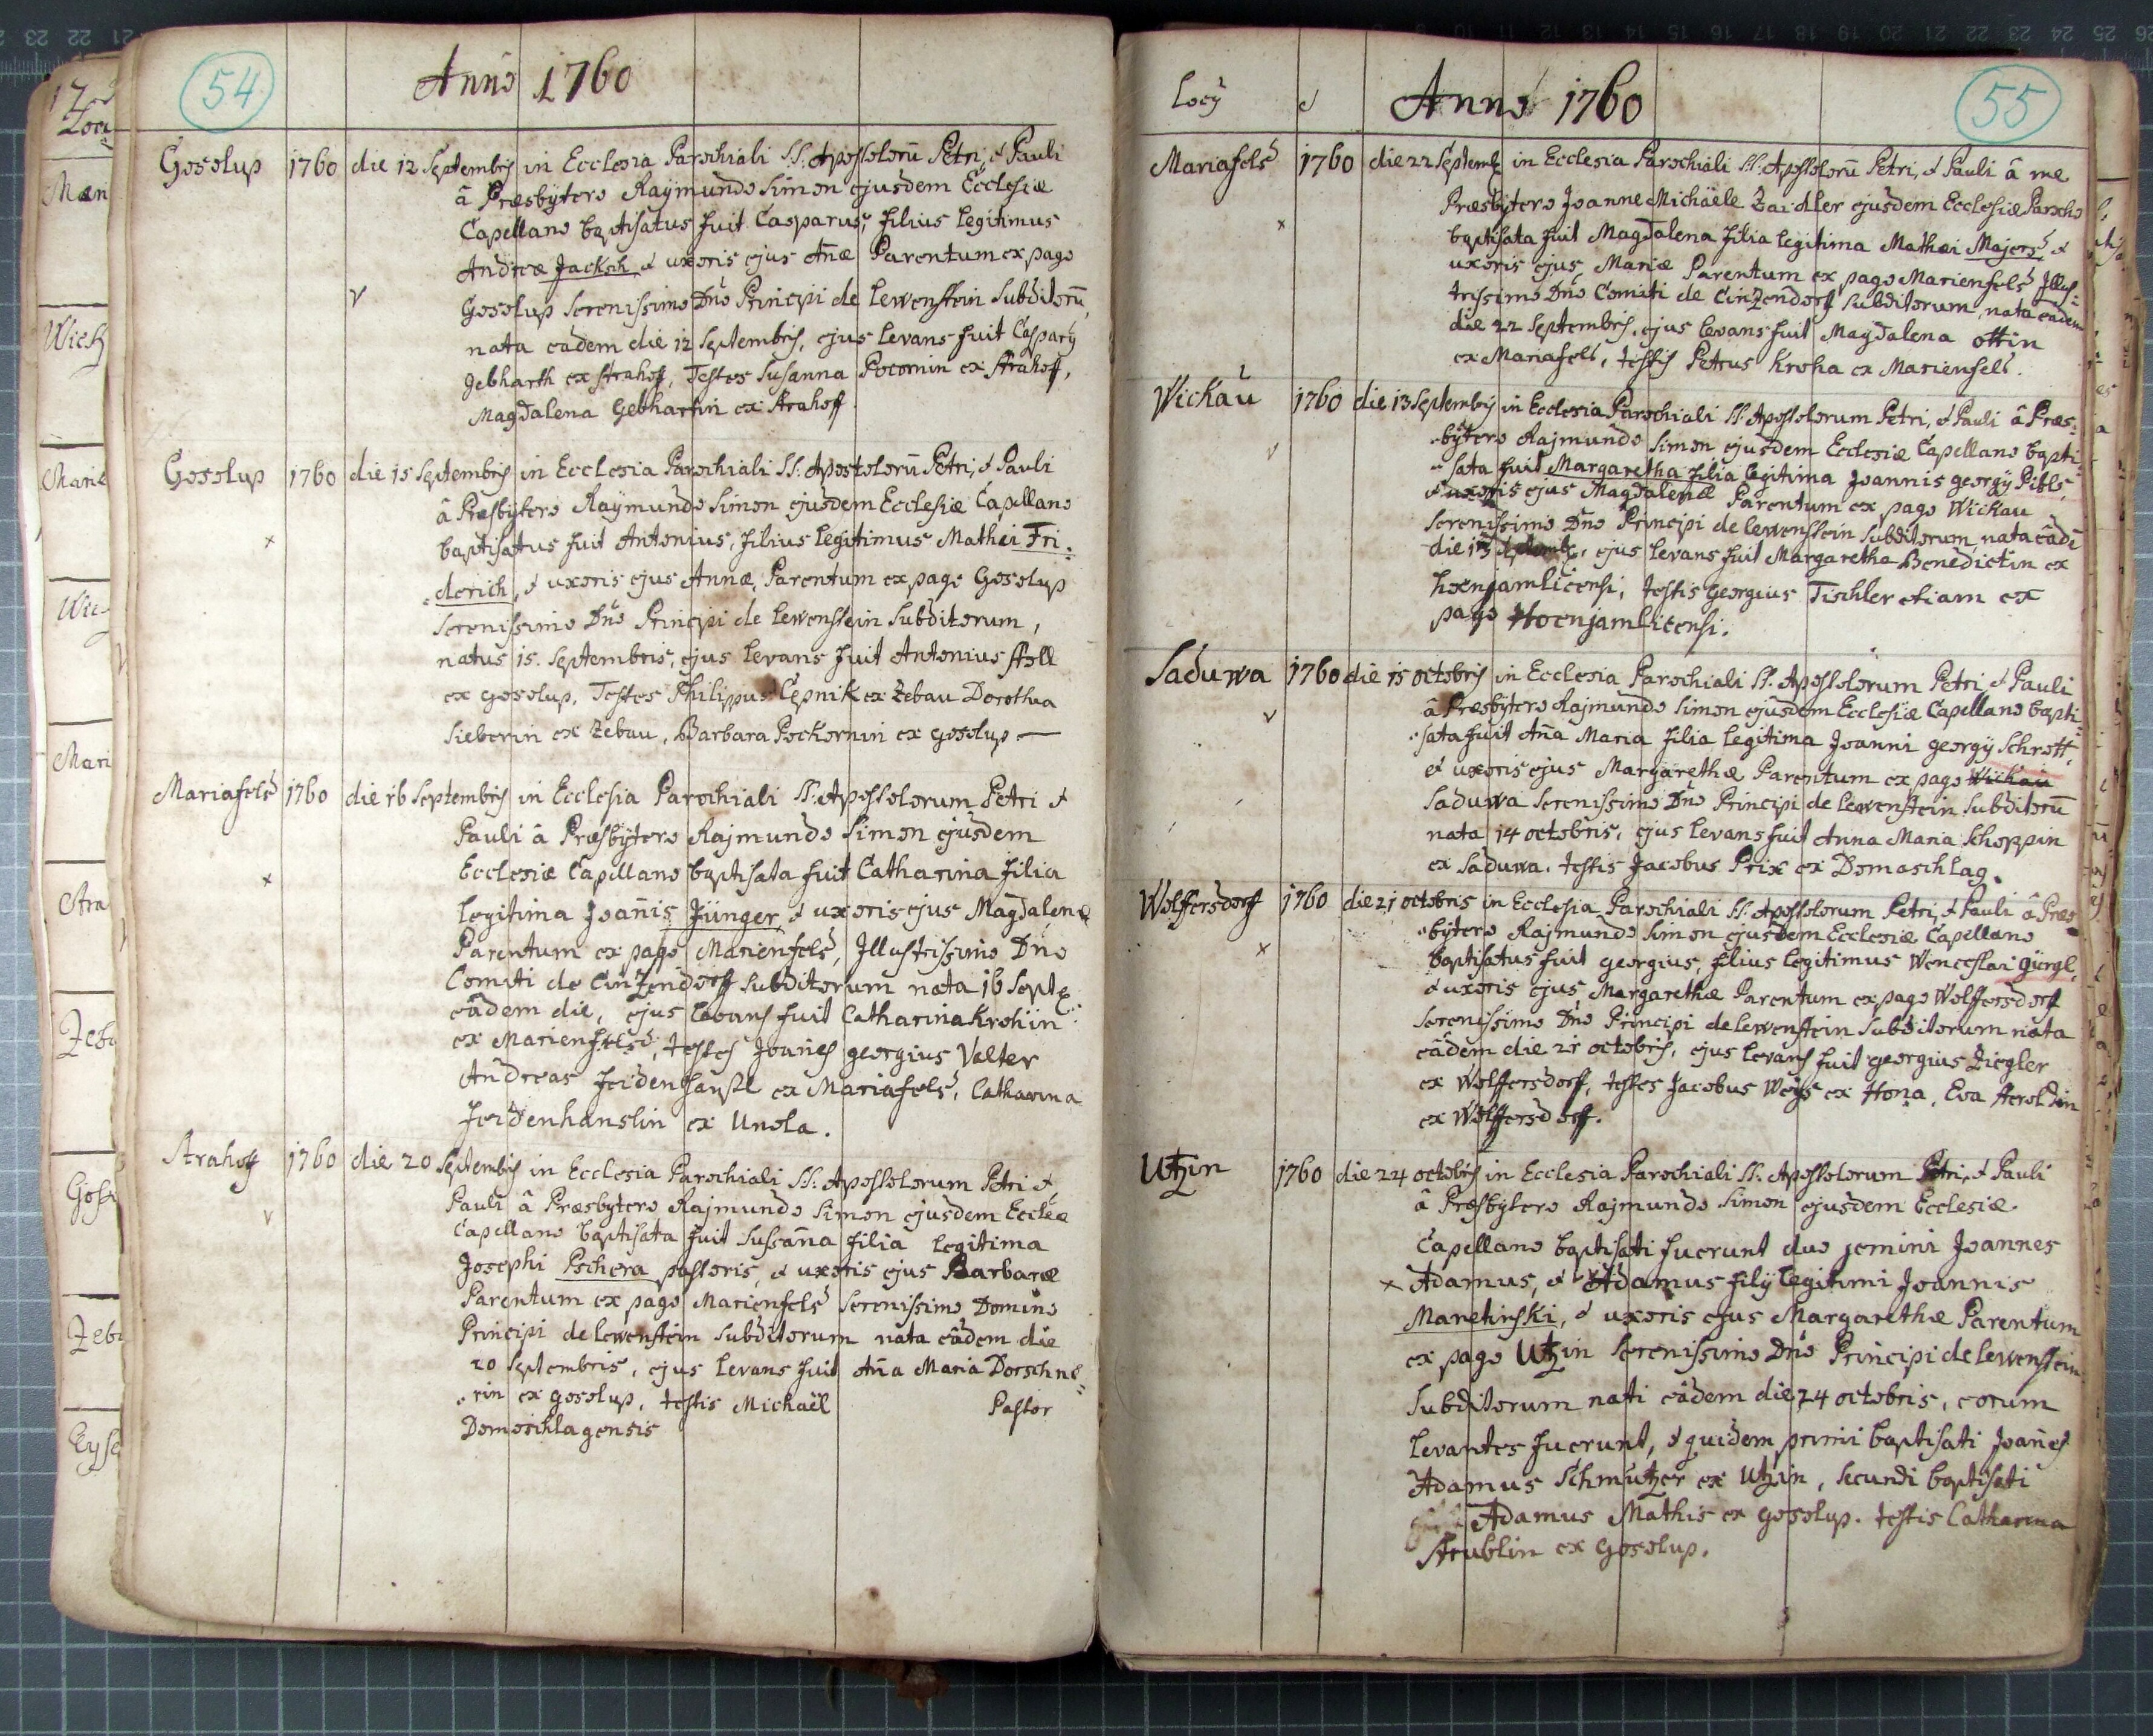 54
Anno 1760
Gosolup 1760 die 12 Septembris in Ecclesia Parochiali SS. Apostolorū Petri, & Pauli
â Præsbytero Raÿmundo Simon ejusdem Ecclesiæ
Capellano baptisatus fuit Casparus, filius legitimus
Andreæ Jacksch & uxoris ejus Añæ Parentum ex pago
Gosolup Serenissimo Dno Principi de Lewenstein Subditorū,
nata eâdem die 12 Septembris, ejus levans fuit Caspary
Gebharth ex Strahof, Testes Susanna Pocornin ex Strahof,
Magdalena Gebhartin ex Strahoff
Gosolup 1760 die 15 Septembris in Ecclesia Parochiali SS. Apostolorū Petri, & Pauli
â Præsbytero Raÿmundo Simon ejusdem Ecclesiæ Capellano
baptisatus fuit Antonius, filius legitimus Mathei Fri-
derich, & uxoris ejus Annæ, Parentum ex pago Gosolup
Serenissimo Dno Principi de Lewenstein Subditorum,
natus 15. Septembris, ejus levans fuit Antonius
ex Gosolup, Testes Philippus Cepnik ex Zebau Dorothea
Sieberin ex Zebau, Barbara Pockornin ex Gosolup
Mariafels 1760 die 16 Septembris in Ecclesia Parochiali SS. Apostolorum Petri &
Pauli â Præsbytero Rajmundo Simon ejusdem
Ecclesiæ Capellano baptisata fuit Catharina filia
legitima Joañis Jünger, & uxoris ejus Magdalenæ
Parentum ex pago Marienfels, Illustrissimo Dno
Comiti de Cinzendorff Subditorum nata 16 Septe
eâdem die, ejus levans fuit Catharina Krohin
ex Marienfels, testes Joañes Georgius Valter
Andreas Heidenhansl ex Mariafels, Catharina
Heidenhanslin ex Unola.
Strahoff 1760 die 20 Septembris in Ecclesia Parochiali SS. Apostolorum Petri &
Pauli â Præsbytero Rajmundo Simon ejusdem Eccleæ
Capellano baptisata fuit Susaña filia legitima
Josephi Pschera pastoris, & uxoris ejus Barbaræ
Parentum ex pago Marienfels Serenissimo Domino
Principi de Lewenstein Subditorum nata eâdem die
20 Septembris, ejus levans fuit Aña Maria Dorschne-
rin ex Gosolup, testis Michaël Pastor
Domoschlagensis
55
Locÿ & Anno 1760
Mariafels 1760 die 22 Septemb in Ecclesia Parochiali SS. Apostolorū Petri, & Pauli â me
Præsbytero Joanne Michaële Zaidler ejusdem Ecclesiæ Parocho
baptisata fuit Magdalena filia legitima Mathæi Majers, &
uxoris ejus Mariæ Parentum ex pago Marienfels Illus-
trissimo Dno Comiti de Cinzendorf Subditorum, nata eâdem
die 22 Septembris, ejus levans fuit Magdalena Ottin
ex Mariafels, testis Petrus Kroha ex Marienfels.
Wickau 1760 die 13 Septembris in Ecclesia Parochiali SS. Apostolorum Petri, & Pauli â Præs-
bytero Rajmundo Simon ejusdem Ecclesiæ Capellano bapti-
sata fuit Margaretha filia legitima Joannis Georgÿ Pibls,
& uxoris ejus Magdalenæ Parentum ex pago Wickau
Serenissimo Dno Principi de Lewenstein Subditorum nata eâdē
die 13 Septemb, ejus levans fuit Margaretha Benedictin ex
Hoenjamlicensi, testis Georgius Tischler etiam ex
pago Hoenjamlicensi.
Saduwa 1760 die 15 octobris in Ecclesia Parochiali SS. Apostolorum Petri & Pauli
â Præsbytero Rajmundo Simon ejusdem Ecclesiæ Capellano bapti-
sata fuit Aña Maria filia legitima Joanni Georgÿ Schrott,
& uxoris ejus Margarethæ Parentum ex pago Wickau
Saduwa Serenissimo Dno Principi de Lewenstein Subditorū
nata 14 octobris, ejus levans fuit Anna Maria Schoppin
ex Saduwa. testis Jacobus Prix ex Domaschlag.
Wolffersdorf 1760 die 21 octobris in Ecclesia Parochiali SS. Apostolorum Petri, & Pauli â Præs-
bytero Rajmundo Simon ejusdem Ecclesiæ Capellano
baptisatus fuit Georgius, filius legitimus Wenceslai Güergl,
& uxoris ejus Margarethæ Parentum ex pago Wolffersdorf
Serenissimo Dno Principi de Lewenstein Subditorum nata
eâdem die 21 octobris, ejus levans fuit Georgius Ziegler
ex Wolffersdorf, testes Jacobus Weys ex Hona, Eva Heroldin
ex Wolffersdorff.
Utzin 1760 die 24 octobris in Ecclesia Parochiali SS. Apostolorum Petri, & Pauli
â Præsbytero Rajmundo Simon ejusdem Ecclesiæ
Capellano baptisati fuerunt duo jemini Joannes
Adamus, & Adamus filÿ legitimi Joannis
Maretinski, & uxoris ejus Margarethæ Parentum
ex pago Utzin Serenissimo Dno Principi de Lewenstein
Subditorum nati eâdem die 24 octobris, eorum
levantes fuerunt, & quidem primi baptisati Joañes
Adamus Schmutzer ex Utzin, secundi baptisati
Adamus Mathis ex Gosolup. testis Catharina
Strublin ex Gosolup.